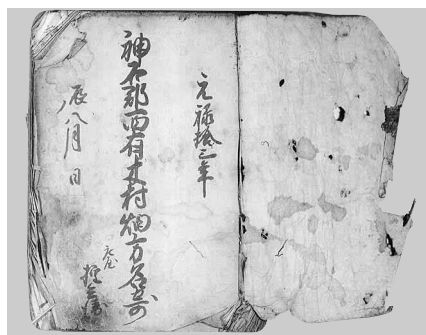 元禄拾三年
神石郡西有木村畑方名寄
辰ノ八月日
庄屋